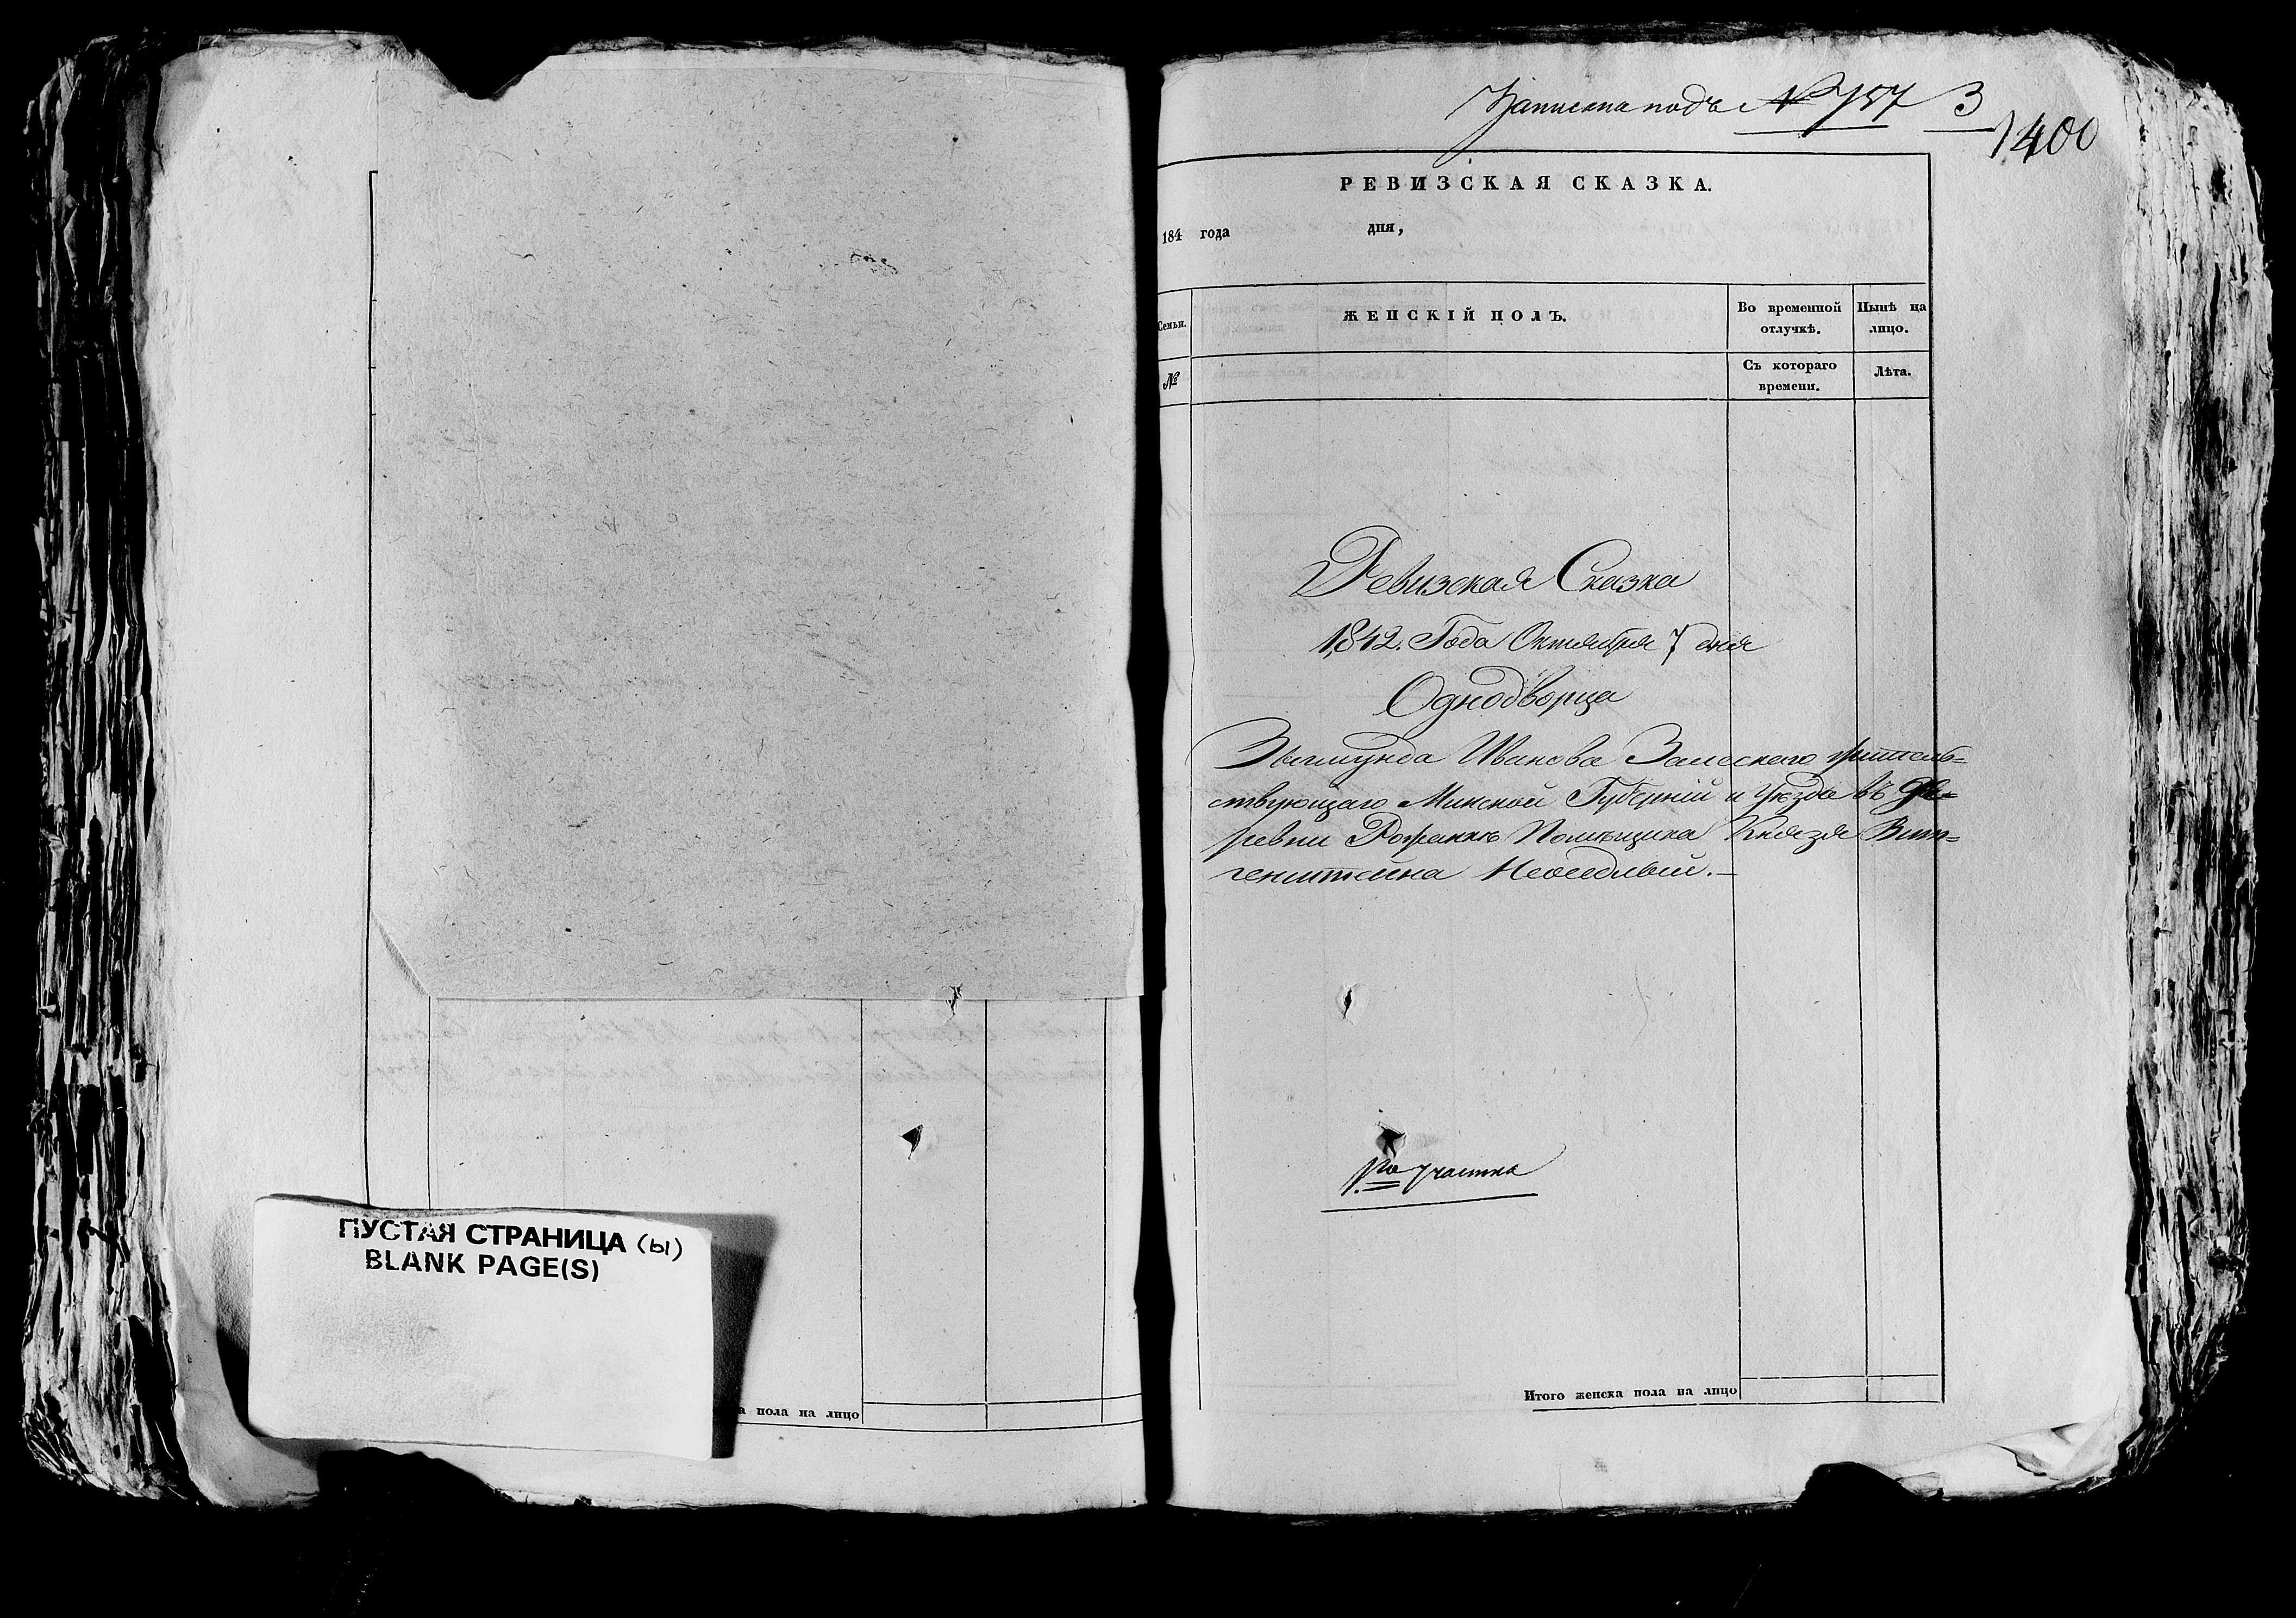 Записана подъ № 757 3
1400
РЕВИЗСКАЯ СКАЗКА.
184 года дня,
Семьи. ЖЕНСКІЙ ПОЛЪ. Во временной отлучкѣ. Нынѣ на лицо.
№ Съ котораго времени. Лѣта.
Ревизская Сказка
1842. Года Октября 7 дня
Однодворца
Зыгмунда Иванова Залескаго житель=
ствующаго Минской Губерніи и Уѣзда въ де=
ревни Рожанкѣ Помѣщика Князя Вит=
генштейна Неоседлый.—
1го участка
Итого женска пола на лицо
ПУСТАЯ СТРАНИЦА (ы)
BLANK PAGE(S)
а пола на лицо